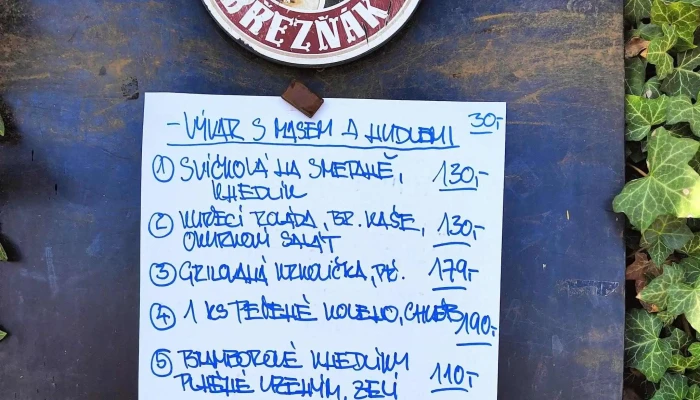 BŘEZŇÁK
- VÝVAR S MASEM A NUDLEMI 30,-
① SVÍČKOVÁ NA SMETANĚ, 130,-
KNEDLÍK
② KUŘECÍ ROLÁDA, BR. KAŠE, 130,-
OKURKOVÝ SALÁT
③ GRILOVANÁ KRKOVIČKA, PŘ. 179,-
④ 1 KS PEČENÉ KOLENO, CHLÉB 190,-
⑤ BRAMBOROVÉ KNEDLÍKY
PLNĚNÉ UZENÝM, ZELÍ 110,-